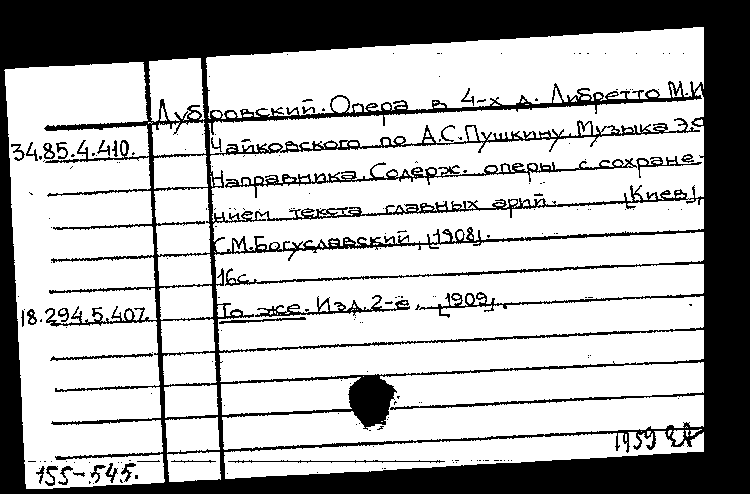 Дубровский. Опера в 4-х д. Либретто М.И
34.85.4.410. Чайковского по А.С.Пушкину. Музыка Э.Ф
Направника. Содерж. оперы с сохране-
нием текста главных арий. [Киев],
С.М.Богуславский, [1908].
16с.
18.294.5.407. То же. Изд. 2-е. [1909].
1959
155-545.